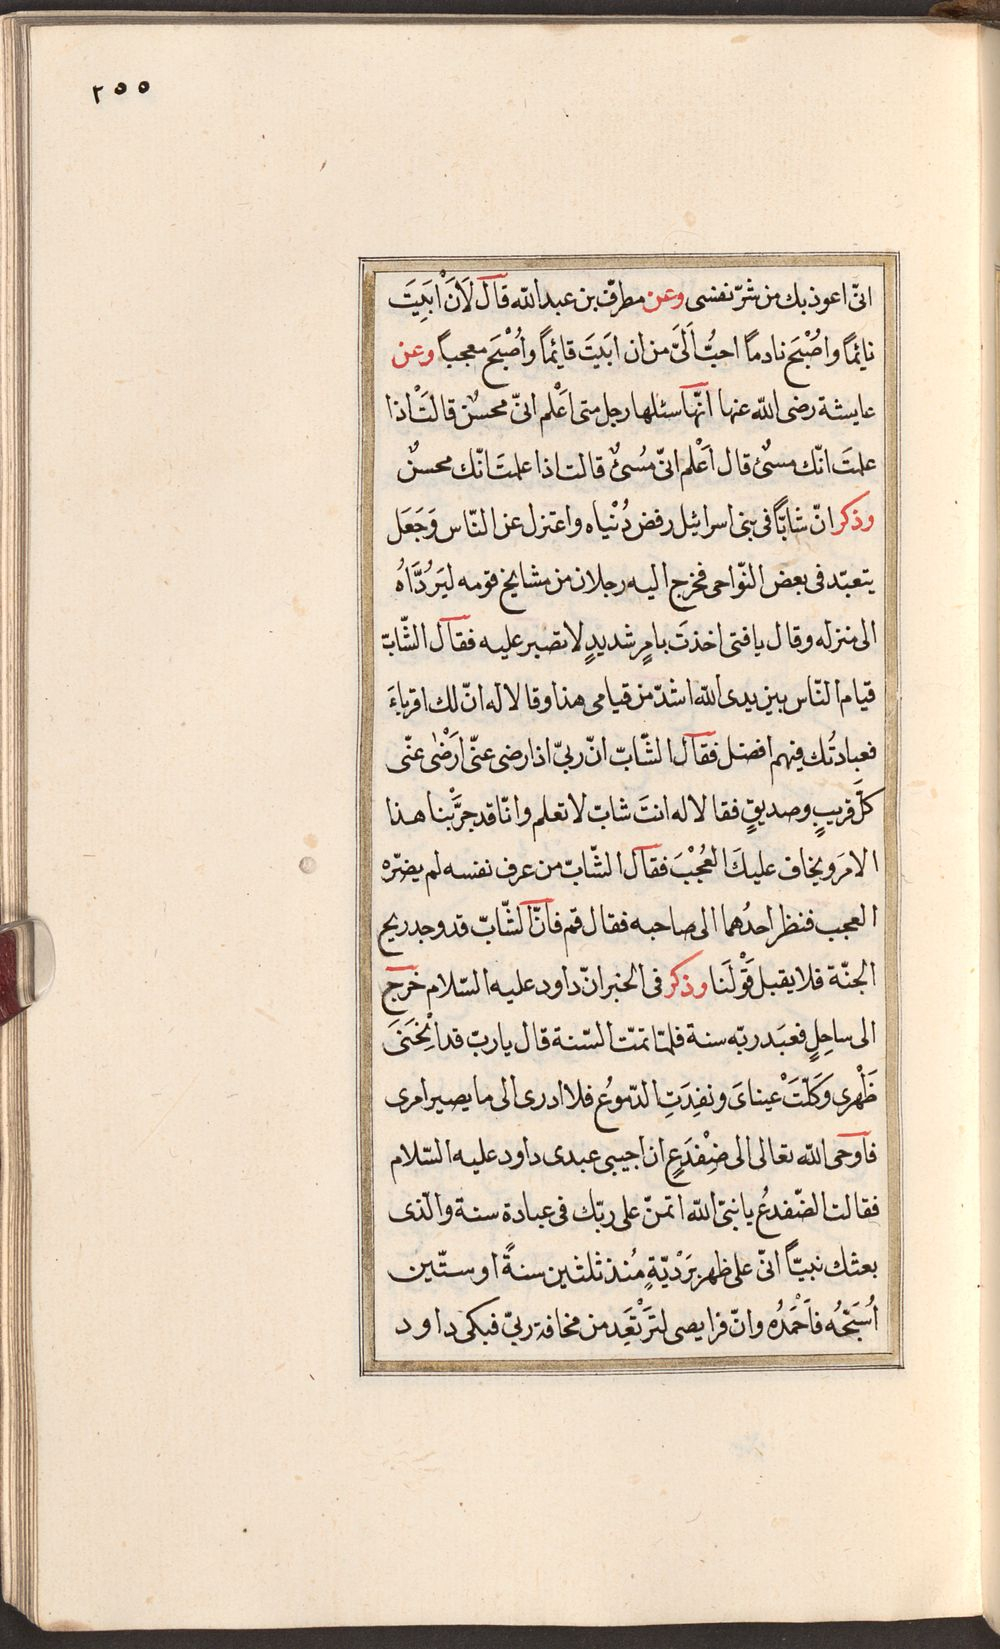 ٢٥٥
انّى اعوذ بك من شرّ نفسى وعن مطرّف بن عبد الله قال لَاَنْ اَبَيِتَ
نايُمًا واصُبْحَ نادماً احبُّ اَلىَّ من ان ابَيتَ قايُماً واُصْبْحَ معجباً وعن
عايشة رضى الله عنها انّها سئلها رجل متى اَعْلم انىّ محسنٌ قالتَْ اذا
علمتَ انّك مسئٌ قال اَعْلم انىّ مُسئٌ قالت اذا علمتَ انّك محسنٌ
وذكر انّ شابّاً فى بنى اسرائيل رفض دُنْياه واعتزل عن النّاس وَجَعَل
يتعبّد فى بعض النّواحى فخرج اليه رجلان من مشايخ قومه ليَرُدَّاهُ
الى منزله وقال يا فتى اخذتَ بامرٍ شديدٍ لا تصبر عليه فقال الشّابّ
قيام النّاس بين يدى الله اشدّ من قيامى هذا وقالا له انّ لك اقرباءَ
فعبادتُك فيهم افضل فقال الشّابّ انّ ربىّ اذا رضى عنىّ اَرْضٰى عنّى
كلَّ قريبٍ وصديقٍ فقالا له انتَ شابّ لا تعلم وانّا قد جرَّبْنا هذا
الامرَ ويخاف عليكَ العُجْبَ فقال الشّابّ من عرف نفسه لم يضرّه
العجب فنظر احدُهما الى صاحبه فقال قم فانّ الشّابّ قد وجد ريح
الجنّة فلا يقبل قَوْلَنا وذكر فى الخبر انّ داود عليه السّلام خرج
الى ساحِلٍ فعبَد ربّه سنة فلمّا تمّت السّنة قال يا ربّ قد انْحَنىَ
ظَهْرى وَكَلّتَْ عيناىَ ونفِدَتِ الدّموعُ فلا ادرى الى ما يصير امرى
فاَوحى الله تعالى الى ضِفْدَعٍ ان اجيبى عبدى داود عليه السّلام
فقالت الضّفدعُ يا نبىّ الله اتمنّ على ربّك فى عبادة سنة والّذى
بعثك نبيّاً انىّ على ظهر بَرْدِيّةٍ مُنذ ثلثين سنةً او ستّين
اُسَبّحُه فاَحْمَدُه وانّ فرايصى لتَرْتَعِد من مخافة ربىّ فبكى داود